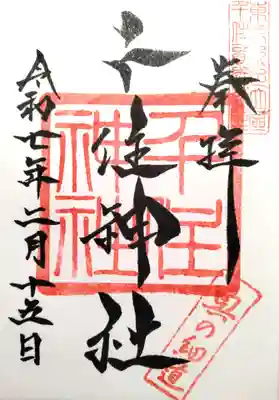 奉拝
千住神社
千住神社
奥の細道
令和七年二月十五日